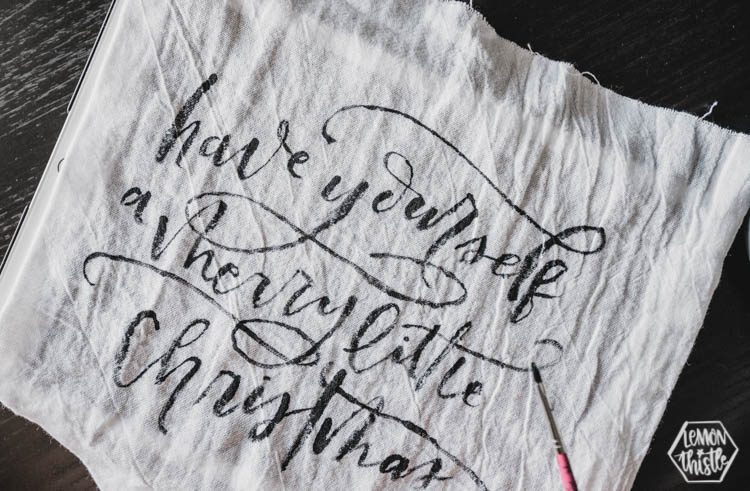 have yourself
a merry little
Christmas
LEMON
thistle